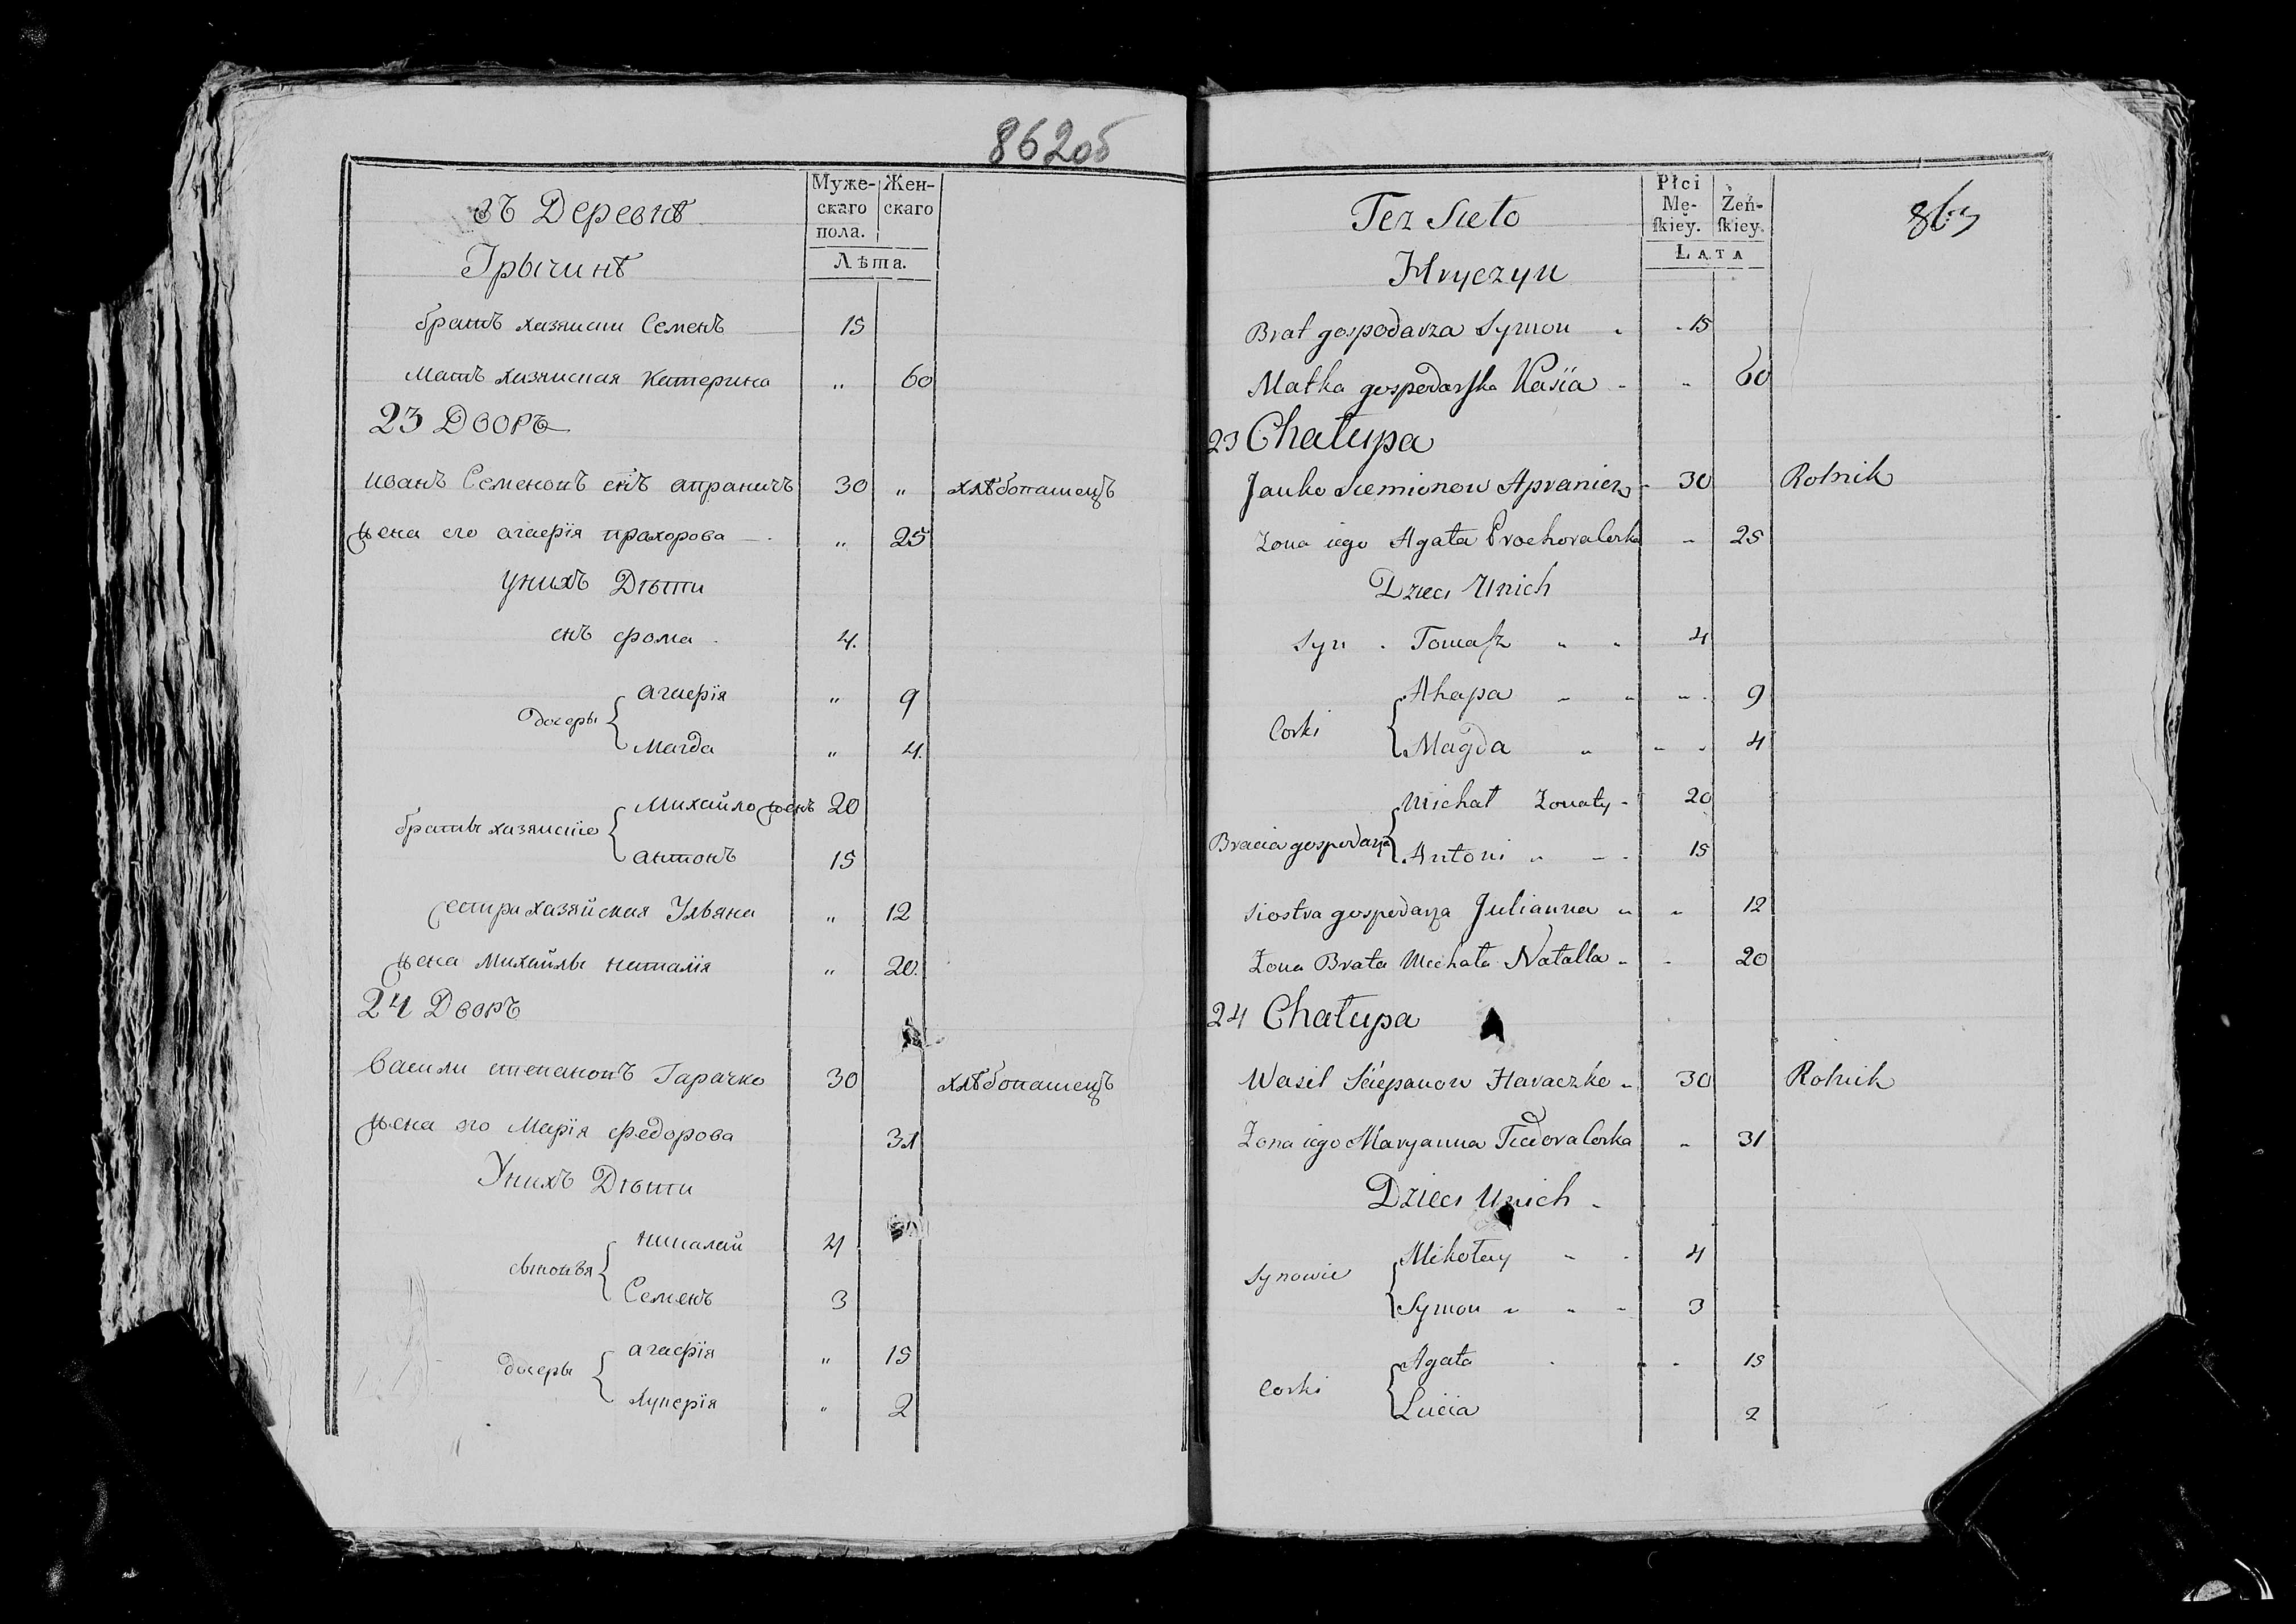 862об
въ Деревнѣ
Муже-
скаго
пола.
Жен-
скаго
Грычинѣ
Лѣта.
братъ хазяиски Семенъ 15
мать хазяиская Катерина " 60
23 Дворъ
иванъ Семеновъ снъ апраничъ 30 " хлѣбопашецъ
жена его агаѳрія прахорова — . " 25
унихъ Дѣти
снъ ѳома . 4.
дочеры { агаѳрія " 9
Магда " 4.
братьѣ хазяискіе { Михайло жонъ 20
антонъ 15
сестра хазяйская Ульяна " 12
жена Михайлы наталія " 20.
24 Дворъ
Васили степановъ Гарачко 30 хлѣбопашецъ
жена эго Марія ѳедорова 31
Унихъ Дѣти
сыновья { николай 4
Семенъ 3
дочеры { агаѳія 15
Лукерія " 2
863
Też Sieło
Płci
Mę-
ſkiéy.
Żeń-
ſkiey.
Hryczyn
LATA
Brat gospodarza Symon - - 15
Matka gospodarſka Kasia - " 60
23 Chałupa
Janko Siemionow Apranicz - 30 Rolnik
Żona iego Agata Prochora Corka - 25
Dzieci Unich
Syn . Tomaſz " " 4
Corki { Ahapa - " - . 9
Magda " - - 4
Bracia gospodarza { Michał Żonaty - 20
Antoni " - - 15
Siostra gospodarza Julianna " " 12
Żona Brata Michała Natalla - - 20
24 Chałupa
Wasil Sciepanow Haraczko - 30 Rolnik
Żona iego Maryanna Fiedora Corka - 31
Dzieci Unich -
Synowie { Mikołay - - 4
Symon " - - 3
Corki { Agata . - - 15
Łucia 2